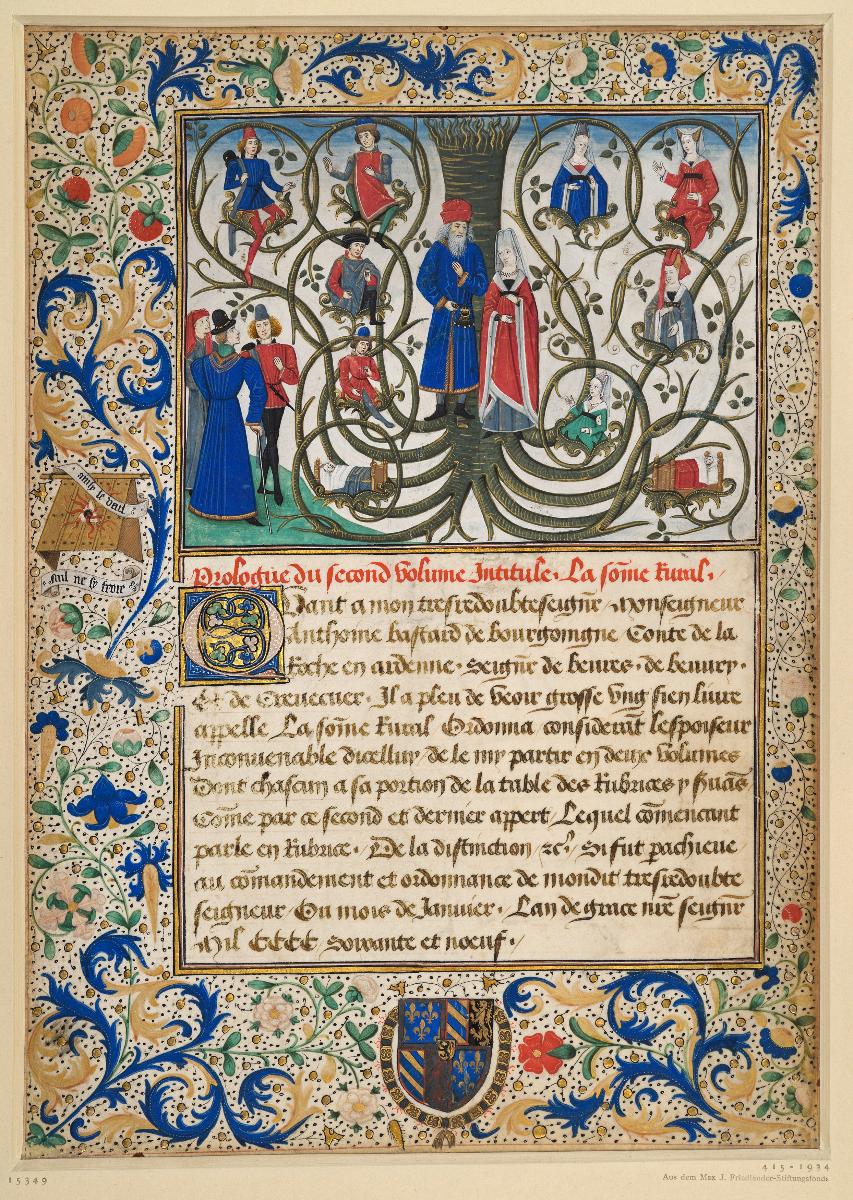 Prologue du second volume Intitule. La sōme Rural.
Quant a mon tresredoubte seignr Monseigneur
Anthoine bastard de bourgoingne Conte de la
Roche en ardenne. Seignr de beures. de beuury.
Et de Creuecuer. Il a pleu de veoir grosse vng sien liure
appelle La sōme Rural Ordonna considerāt lespoiseur
Inconuenable dicelluy de le my partir en deux volumes
Dont chascun a sa portion de la table des Rubrices
Cōme par ce second et dernier appert Lequel cōmencant
parle en Rubrice. De la distinction ⁊cͣ. Si fut pachieue
au cōmandement et ordonnance de mondit tresredoubte
seigneur Ou mois de Januier. Lan de grace nrē seignr
Mil CCCC Soixante et noeuf.
nul ne sy frote
15349
415-1934
Aus dem Max J. Friedländer-Stiftungsfonds